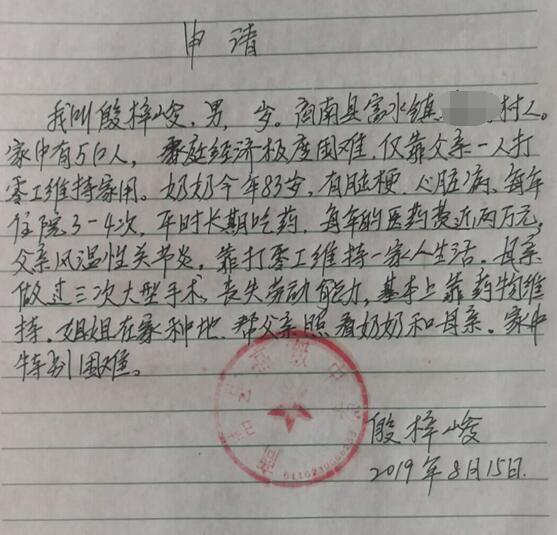 申请
我叫殷梓峻,男,岁。商南县富水镇 村人。
家中有5口人,家庭经济极度困难,仅靠父亲一人打
零工维持家用。奶奶今年83岁,有脑梗、心脏病,每年
住院3-4次,平时长期吃药,每年的医药费近两万元,
父亲风湿性关节炎,靠打零工维持一家人生活。母亲
做过三次大型手术,丧失劳动能力,基本上靠药物维
持。姐姐在家种地,帮父亲照看奶奶和母亲。家中
特别困难。
高级中
殷梓峻
2019年8月15日.